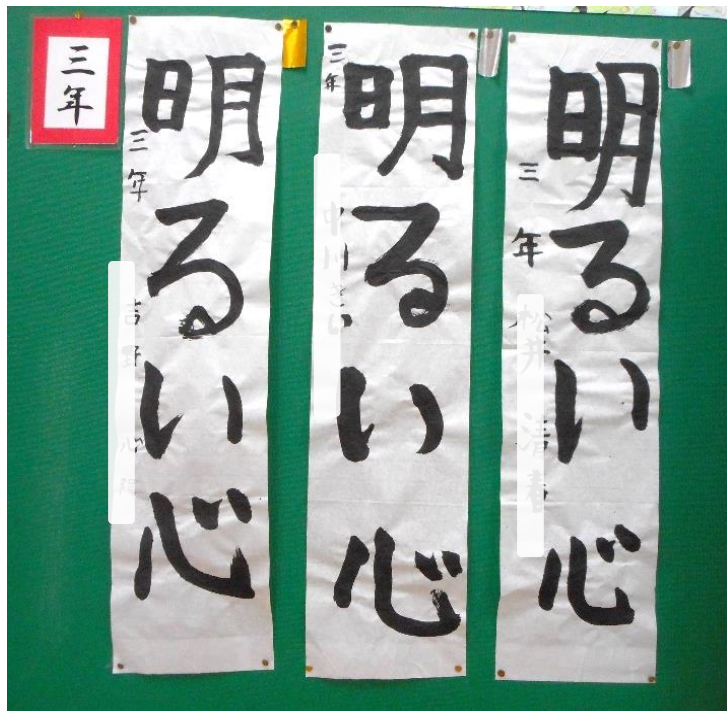 明るい心
三年
明るい心
三年
明るい心
三年
三年